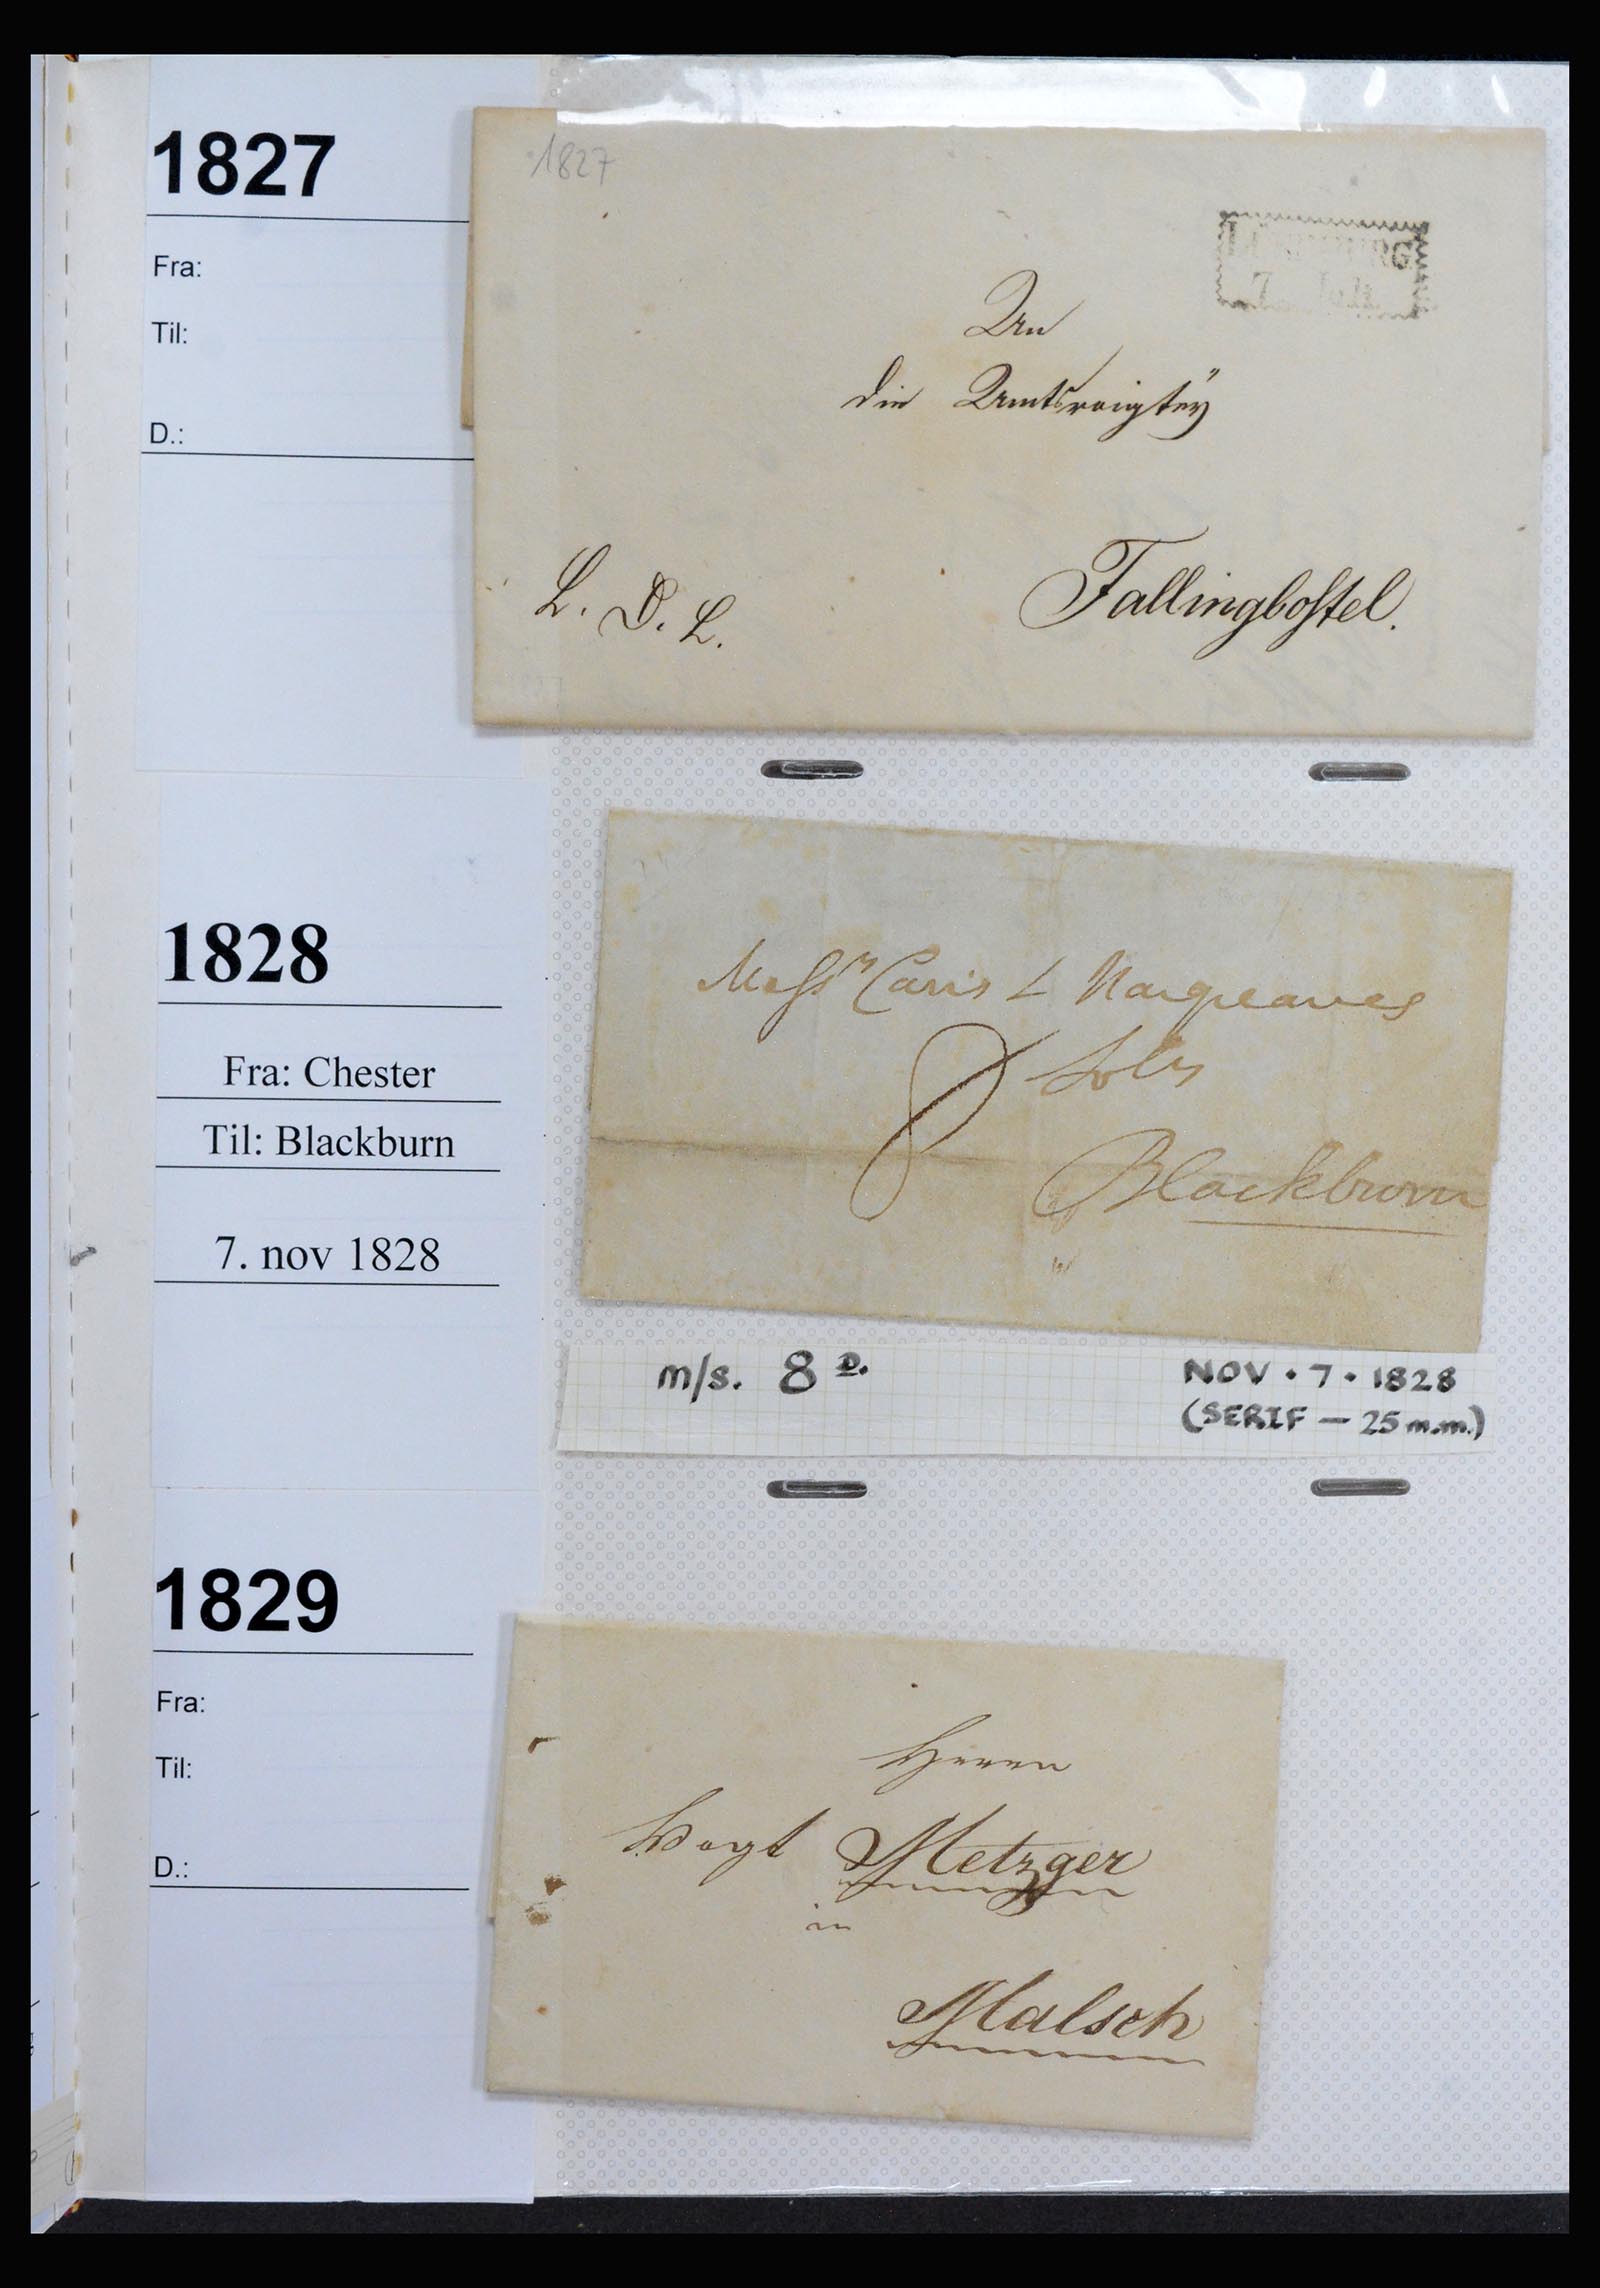 1827
Fra:
Til:
D.:
1827
7 Juli
An
die Amtsvoigtey
L. D. L.
Fallingbostel.
1828
Fra: Chester
Til: Blackburn
7. nov 1828
Messrs & Hargreaves
8 Solrs
Blackburn
m/s. 8 D.
NOV • 7 • 1828
(SERIF — 25 m.m.)
1829
Fra:
Til:
D.:
Herrn
Vogt Metzger
in
Malsch